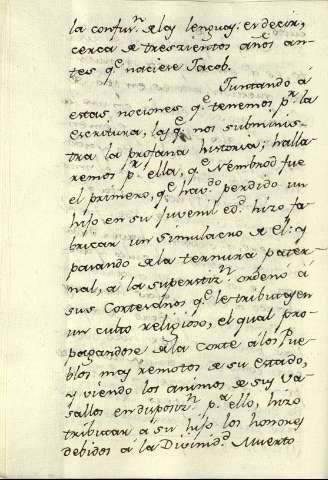 la confus.n de las lenguas: es decir,
cerca de trescientos años an-
tes q.e naciese Jacob.
Juntando á
estas nociones q.e tenemos p.r la
escritura, las q.e nos subminis-
tra la profana historia; halla-
remos p.r ella, q.e Nembrod fue
el primero, q.e hav.do perdido un
hijo en su juvenil ed.d hizo fa-
bricar un simulacro de él: y
pasando de la ternura pater-
nal, á la superstiz.n ordenó á
sus Cortesanos q.e le tributasen
un culto religioso, el qual pro-
pagandose de la corte á los Pue-
blos mas remotos de su estado,
y viendo los animos de sus va-
sallos en disposiz.n p.a ello, hizo
tributar á su hijo los honores
debidos á la Divinid.d Muerto